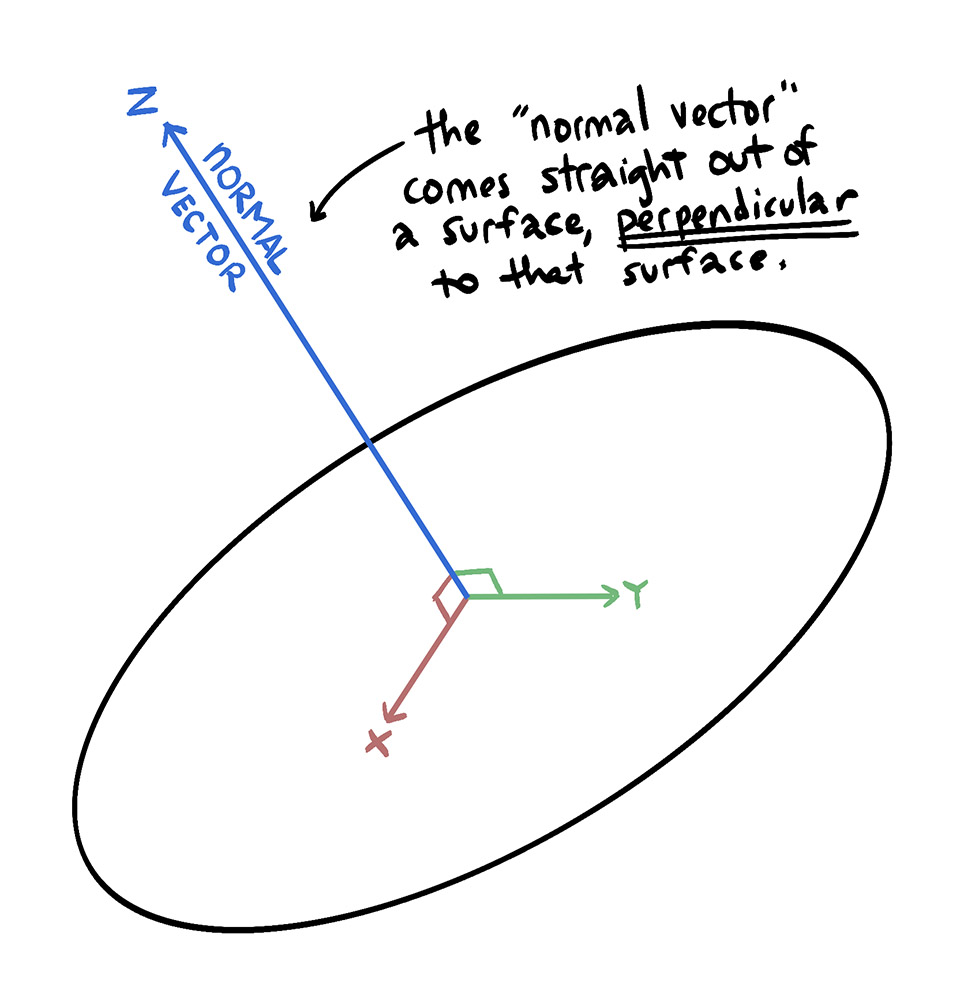 Z
NORMAL
VECTOR
the "normal vector"
comes straight out of
a surface, perpendicular
to that surface.
Y
X